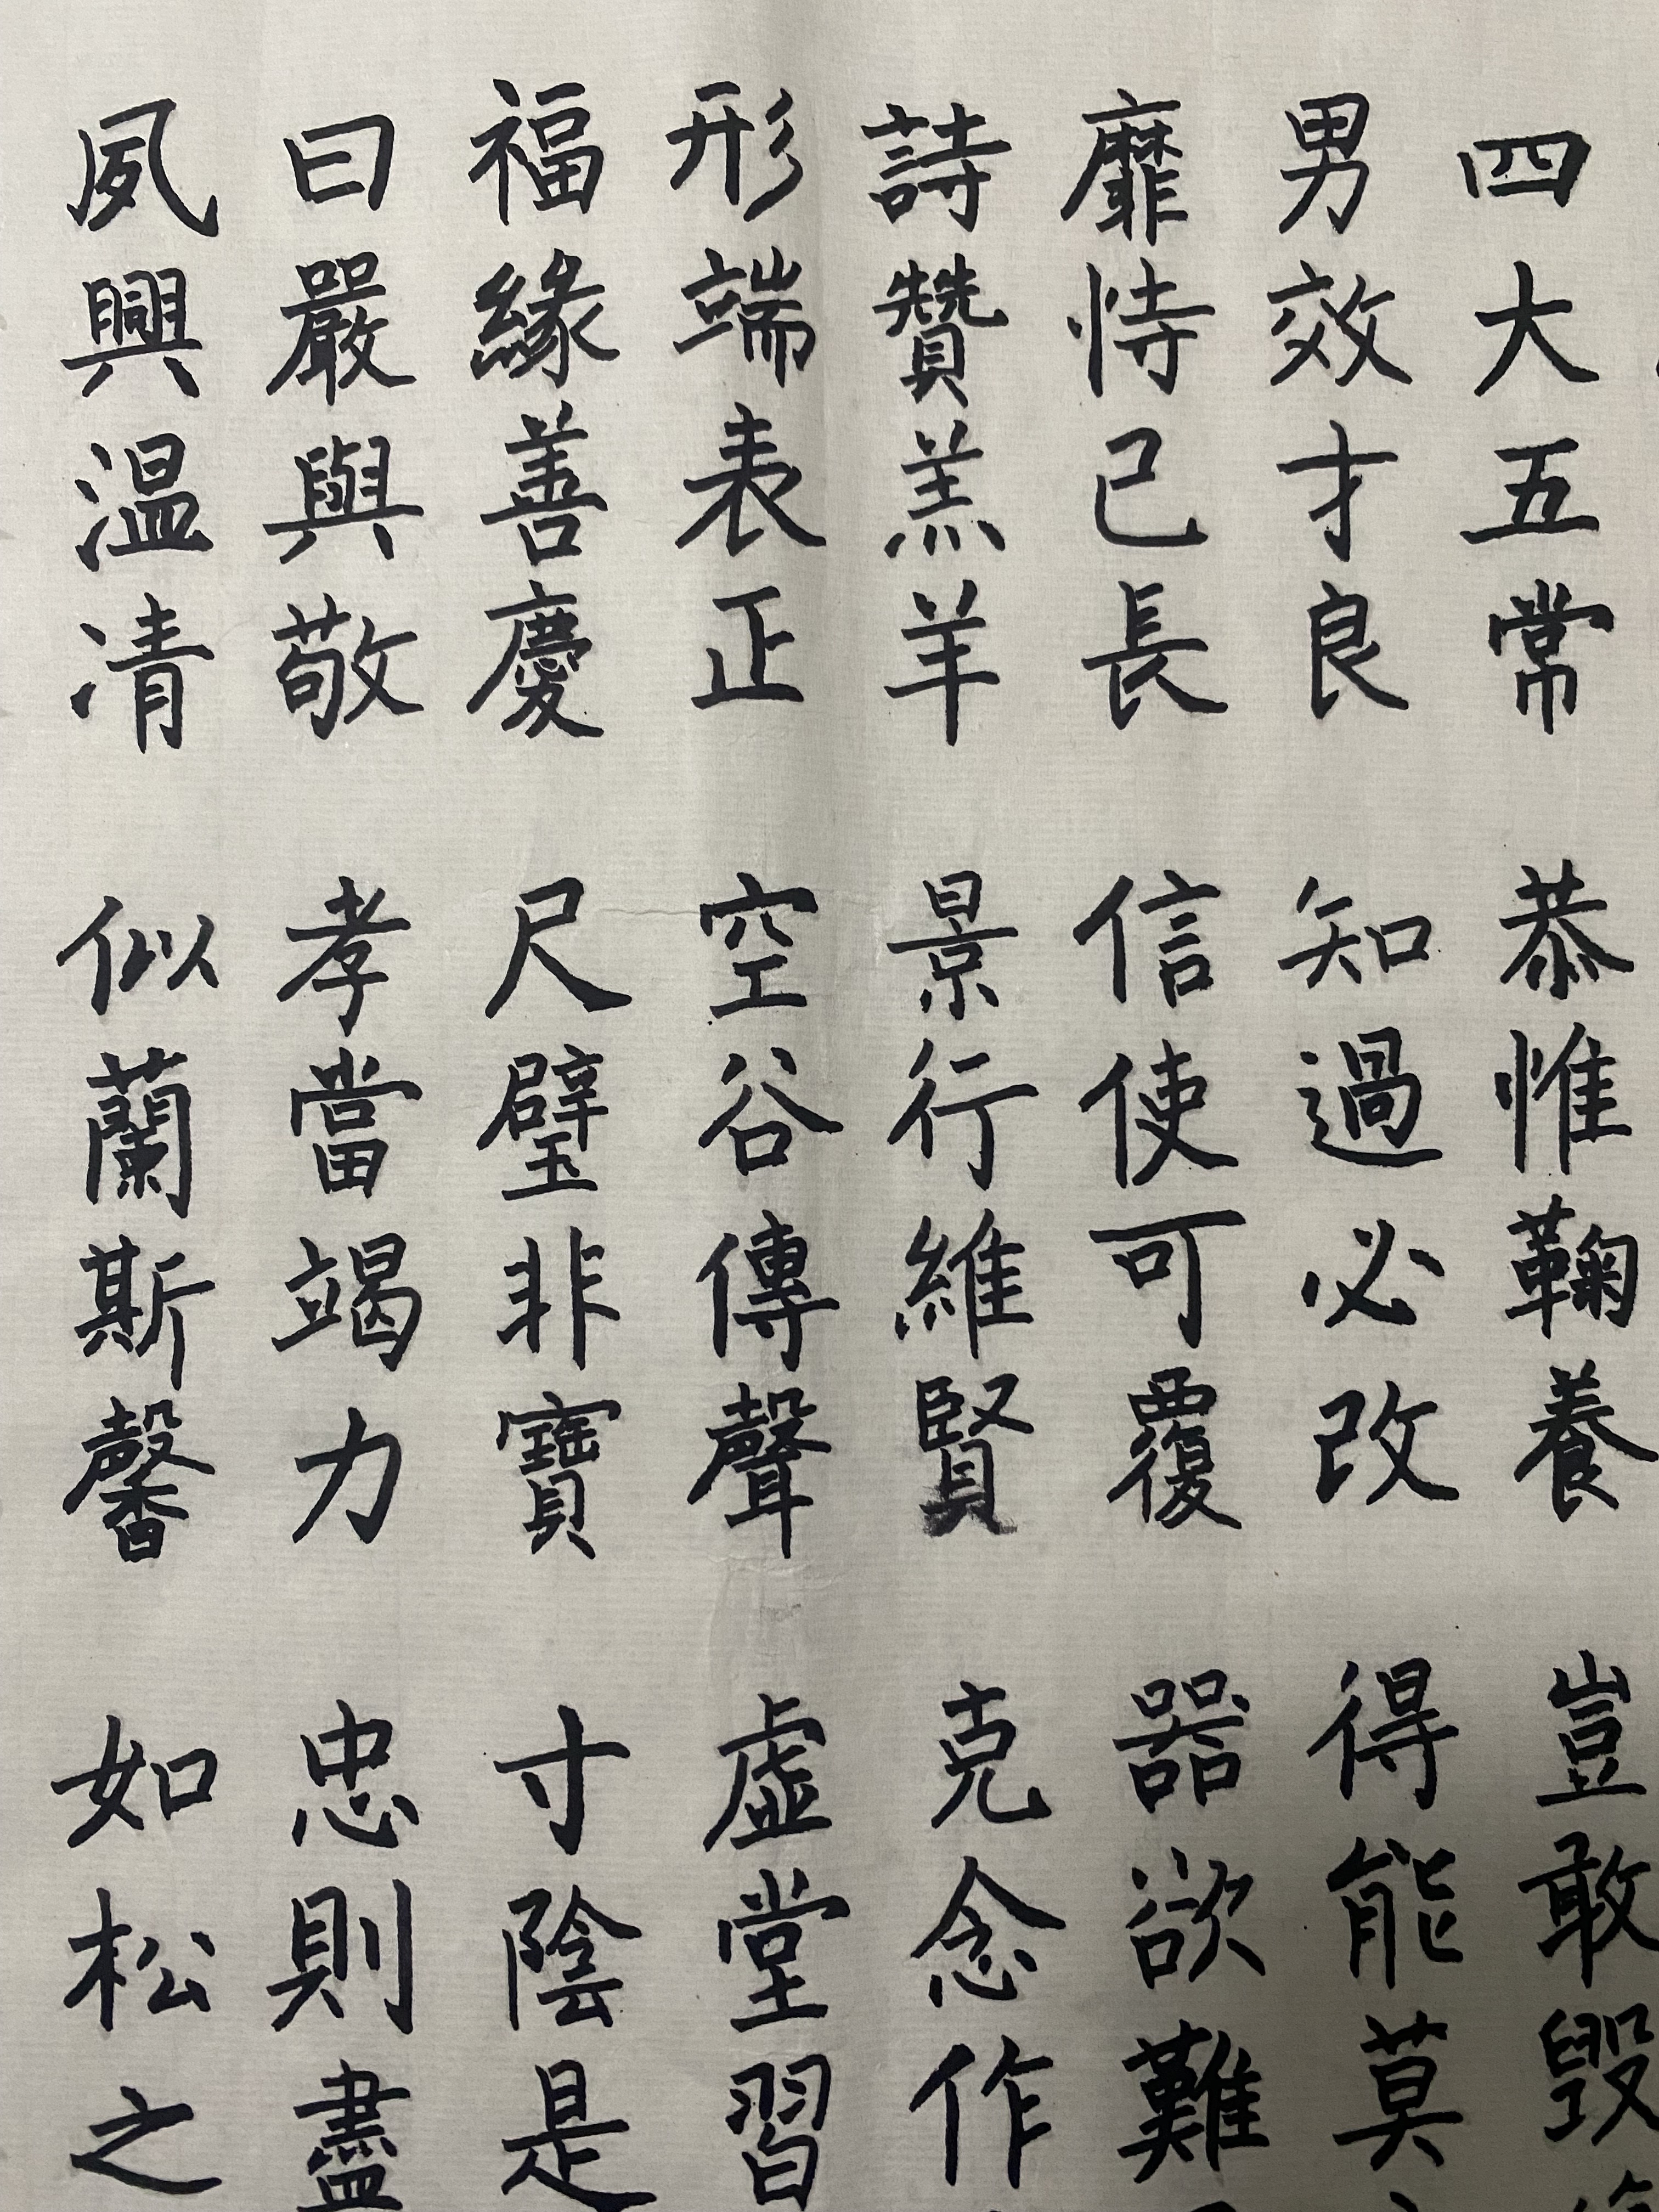 四大五常 恭惟鞠養 豈敢毀
男效才良 知過必改 得能莫
靡恃己長 信使可覆 器欲難
詩贊羔羊 景行維賢 克念作
形端表正 空谷傳聲 虛堂習
福緣善慶 尺璧非寶 寸陰是
曰嚴與敬 孝當竭力 忠則盡
夙興温凊 似蘭斯馨 如松之